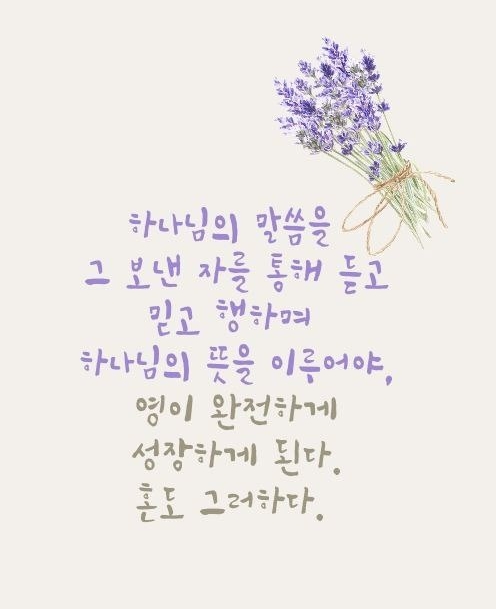 하나님의 말씀을
그 보낸 자를 통해 듣고
믿고 행하며
하나님의 뜻을 이루어야,
영이 완전하게
성장하게 된다.
혼도 그러하다.